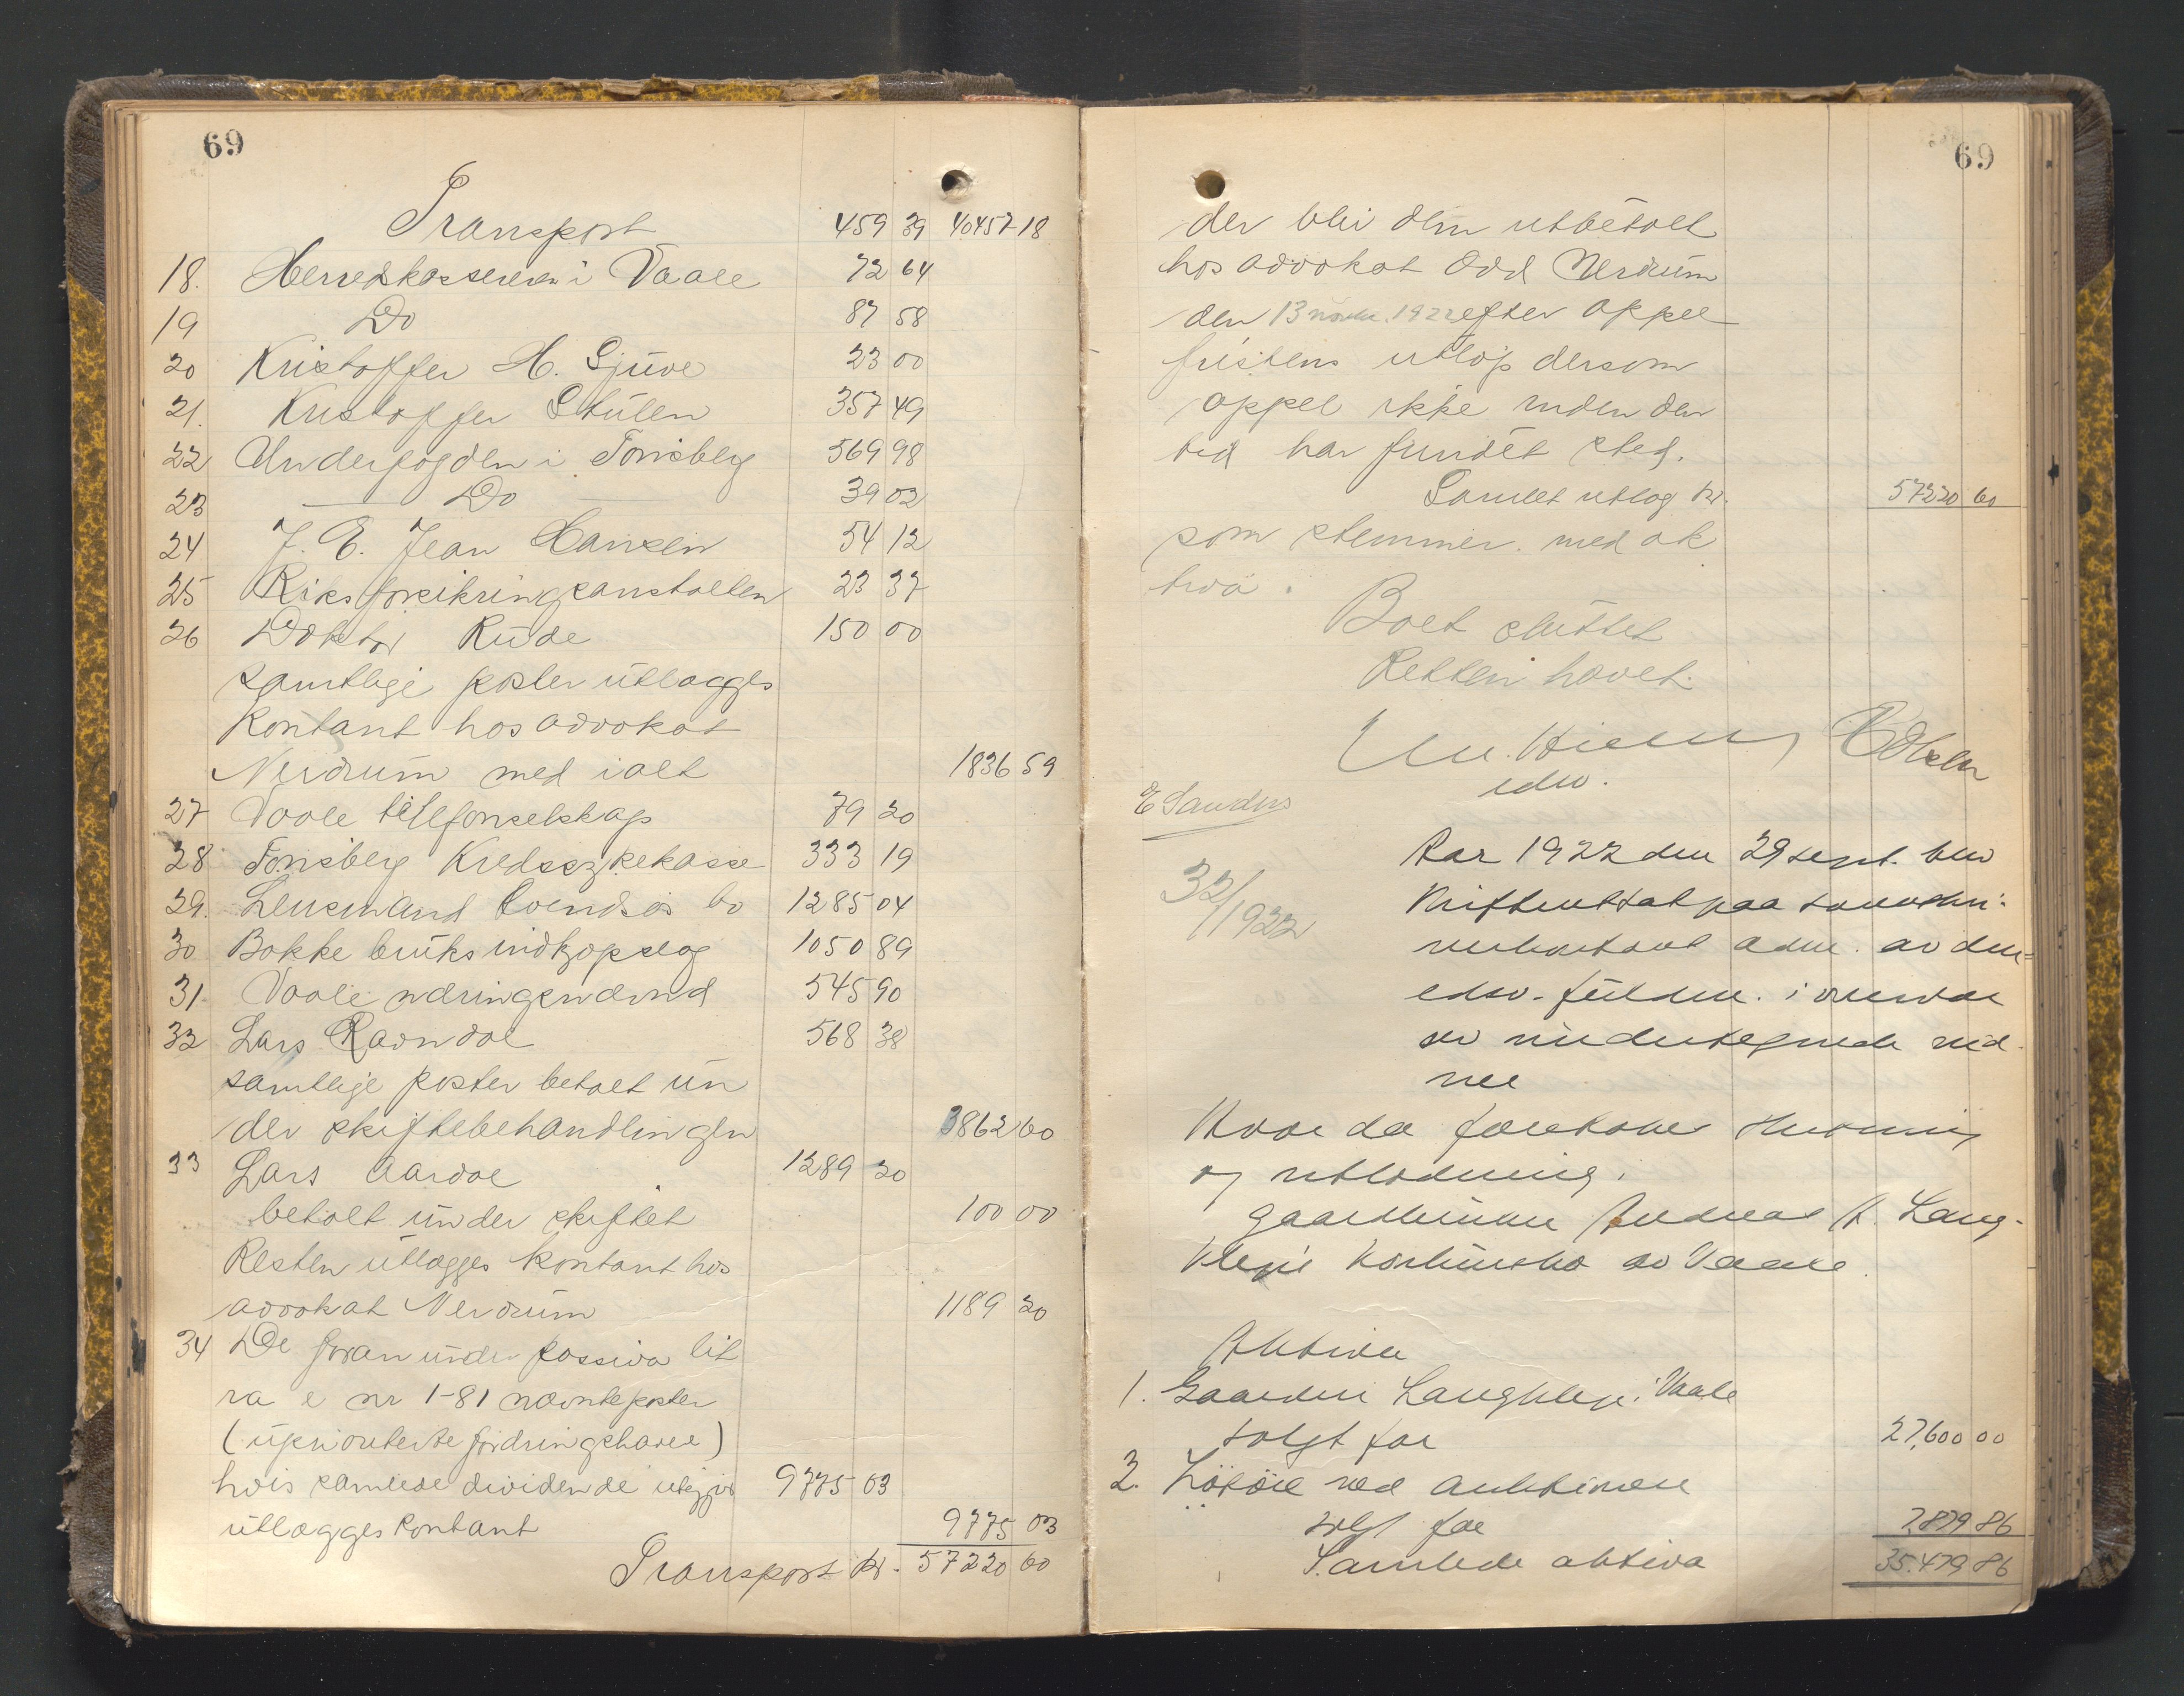 69
Transport 459 39 40457 18
18. Herredskassereren i Vaale 72 64
19 Do 87 58
20 Kristoffer H. Gjuve 23 00
21. Kristoffer Stulen 357 49
22 Underfogden i Tønsberg 569 98
23 Do 39 02
24 J. E. Jean Hansen 54 12
25 Riksforsikringsanstalten 23 37
26 Doktor Rude 150 00
samtlige poster utlægges
kontant hos advokat
Nerdrum med ialt 1836 59
27 Vaale telefonselskap 79 20
28 Tønsberg Kredssykekasse 333 19
29. Lensmand bo 1285 04
30 Bakke bruks indkjøpslag 1050 89
31. Vaale 545 90
32 Lars Ravndal 568 38
samtlige poster betalt un
der skiftebehandlingen 3862 60
33 Lars Aardal 1289 20
betalt under skiftet 100 00
Resten utlægges kontant hos
advokat Nerdrum 1189 20
34 De foran under passiva lit
ra e nr 1-81 nævnte poster
(uprioriterte fordringshavere)
hvis samlede dividende utgjør 9775 03
utlægges kontant 9775 03
Transport kr. 57220 60
69
der blir dem utbetalt
hos advokat Odd Nerdrum
den 13 novbr. 1922 efter appel
fristens utløp dersom
appel ikke inden den
tid har fundet sted.
Samlet utlæg kr. 57220 60
som stemmer med ak
tiva.
Boet sluttet
Retten hævet.
edsv.
E Sanders
32/1922
Aar 1922 den 29 sept. blev
skifteret sat paa
adm. av den
edsv. fuldm. i nærvær
av undertegnede vid
ne
Hvor da foretokes slutning
og utlodning i
gaardbruker Andreas A. Lang-
kleps konkursbo av Vaale.
Aktiva
1. Gaarden Langklep i Vaale
solgt for 27,600 00
2. Løsøre ved auktionen
solgt for 7,879 86
Samlede aktiva 35.479 86